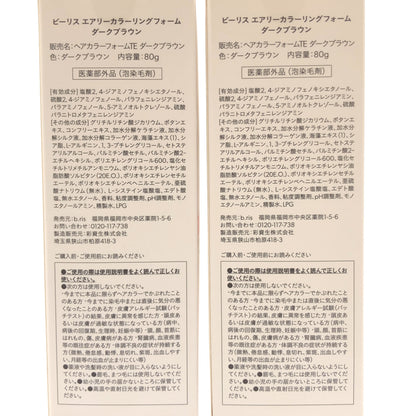 ビーリス エアリーカラーリングフォーム
ダークブラウン
販売名:ヘアカラーフォームTE ダークブラウン
色:ダークブラウン 内容量:80g
医薬部外品(泡染毛剤)
[有効成分] 塩酸2, 4-ジアミノフェノキシエタノール,
硫酸2, 4-ジアミノフェノール, パラフェニレンジアミン,
パラアミノフェノール, 5-アミノオルトクレゾール, 硫酸
パラニトロメタフェニレンジアミン
[その他の成分] グリチルリチン酸ジカリウム, ボタンエキ
ス, コンフリーエキス, 加水分解ケラチン液, 加水分解
シルク液, 加水分解コラーゲン液, 海藻エキス(1), シ
ア脂, L-アルギニン, 1, 3-ブチレングリコール, セトス
テアリルアルコール, パルミチン酸セチル, パルミチン酸2-
エチルヘキシル, ポリエチレングリコール600, 塩化セチ
ルトリメチルアンモニウム, ポリオキシエチレンヤシ油
脂肪酸ソルビタン(20E.O.), ポリオキシエチレンセチル
エーテル, ポリオキシエチレンベヘニルエーテル, 亜硫
酸ナトリウム(無水), L-システイン塩酸塩, エデト酸
塩, 無水エタノール, 香料, 粘度調整剤, pH調整剤, モノ
エタノールアミン, 精製水, LPG
発売元:b.ris 福岡県福岡市中央区薬院1-5-6
お問い合わせ:0120-117-738
製造販売元:彩資生株式会社
埼玉県狭山市柏原418-3
ご購入前・ご使用前にお読みください。
●ご使用の際は使用説明書をよく読んで正しくお
使いください。
●次の方は使用しないでください。
・今までに本品に限らずヘアカラーでかぶれたこと
のある方・今までに染毛中または直後に気分の悪
くなったことのある方・皮膚アレルギー試験(パッ
チテスト)の結果、皮膚に異常を感じた方・頭皮あ
るいは皮膚が過敏な状態になっている方(病中、
病後の回復期、生理時、妊娠中等)・頭、顔、首筋に
はれもの、傷、皮膚病がある方・腎臓病、血液疾患
等の既往症がある方・体調不良の症状が持続する
方(微熱、倦怠感、動悸、息切れ、紫斑、出血しやす
い、月経等の出血が止まりにくい等)
●薬液や洗髪時の洗い液が目に入らないようにし
てください。●眉毛、まつ毛には使用しないでくださ
い。●幼小児の手の届かないところに保管してくだ
さい。●高温や直射日光を避けて保管してください。
ビーリス エアリーカラーリングフォーム
ダークブラウン
販売名:ヘアカラーフォームTE ダークブラウン
色:ダークブラウン 内容量:80g
医薬部外品(泡染毛剤)
[有効成分] 塩酸2, 4-ジアミノフェノキシエタノール,
硫酸2, 4-ジアミノフェノール, パラフェニレンジアミン,
パラアミノフェノール, 5-アミノオルトクレゾール, 硫酸
パラニトロメタフェニレンジアミン
[その他の成分] グリチルリチン酸ジカリウム, ボタンエ
キス, コンフリーエキス, 加水分解ケラチン液, 加水分
解シルク液, 加水分解コラーゲン液, 海藻エキス(1),
シア脂, L-アルギニン, 1, 3-ブチレングリコール, セト
ステアリルアルコール, パルミチン酸セチル, パルミチン
酸2-エチルヘキシル, ポリエチレングリコール600, 塩化セ
チルトリメチルアンモニウム, ポリオキシエチレンヤシ
油脂肪酸ソルビタン(20E.O.), ポリオキシエチレンセチル
エーテル, ポリオキシエチレンベヘニルエーテル, 亜硫
酸ナトリウム(無水), L-システイン塩酸塩, エデト酸
塩, 無水エタノール, 香料, 粘度調整剤, pH調整剤, モノ
エタノールアミン, 精製水, LPG
発売元:b.ris 福岡県福岡市中央区薬院1-5-6
お問い合わせ:0120-117-738
製造販売元:彩資生株式会社
埼玉県狭山市柏原418-3
ご購入前・ご使用前にお読みください。
●ご使用の際は使用説明書をよく読んで正しくお
使いください。
●次の方は使用しないでください。
・今までに本品に限らずヘアカラーでかぶれたこと
のある方・今までに染毛中または直後に気分の悪
くなったことのある方・皮膚アレルギー試験(パッ
チテスト)の結果、皮膚に異常を感じた方・頭皮あ
るいは皮膚が過敏な状態になっている方(病中、
病後の回復期、生理時、妊娠中等)・頭、顔、首筋
にはれもの、傷、皮膚病がある方・腎臓病、血液疾患
等の既往症がある方・体調不良の症状が持続する
方(微熱、倦怠感、動悸、息切れ、紫斑、出血しやす
い、月経等の出血が止まりにくい等)
●薬液や洗髪時の洗い液が目に入らないようにし
てください。●眉毛、まつ毛には使用しないでくださ
い。●幼小児の手の届かないところに保管してくだ
さい。●高温や直射日光を避けて保管してください。